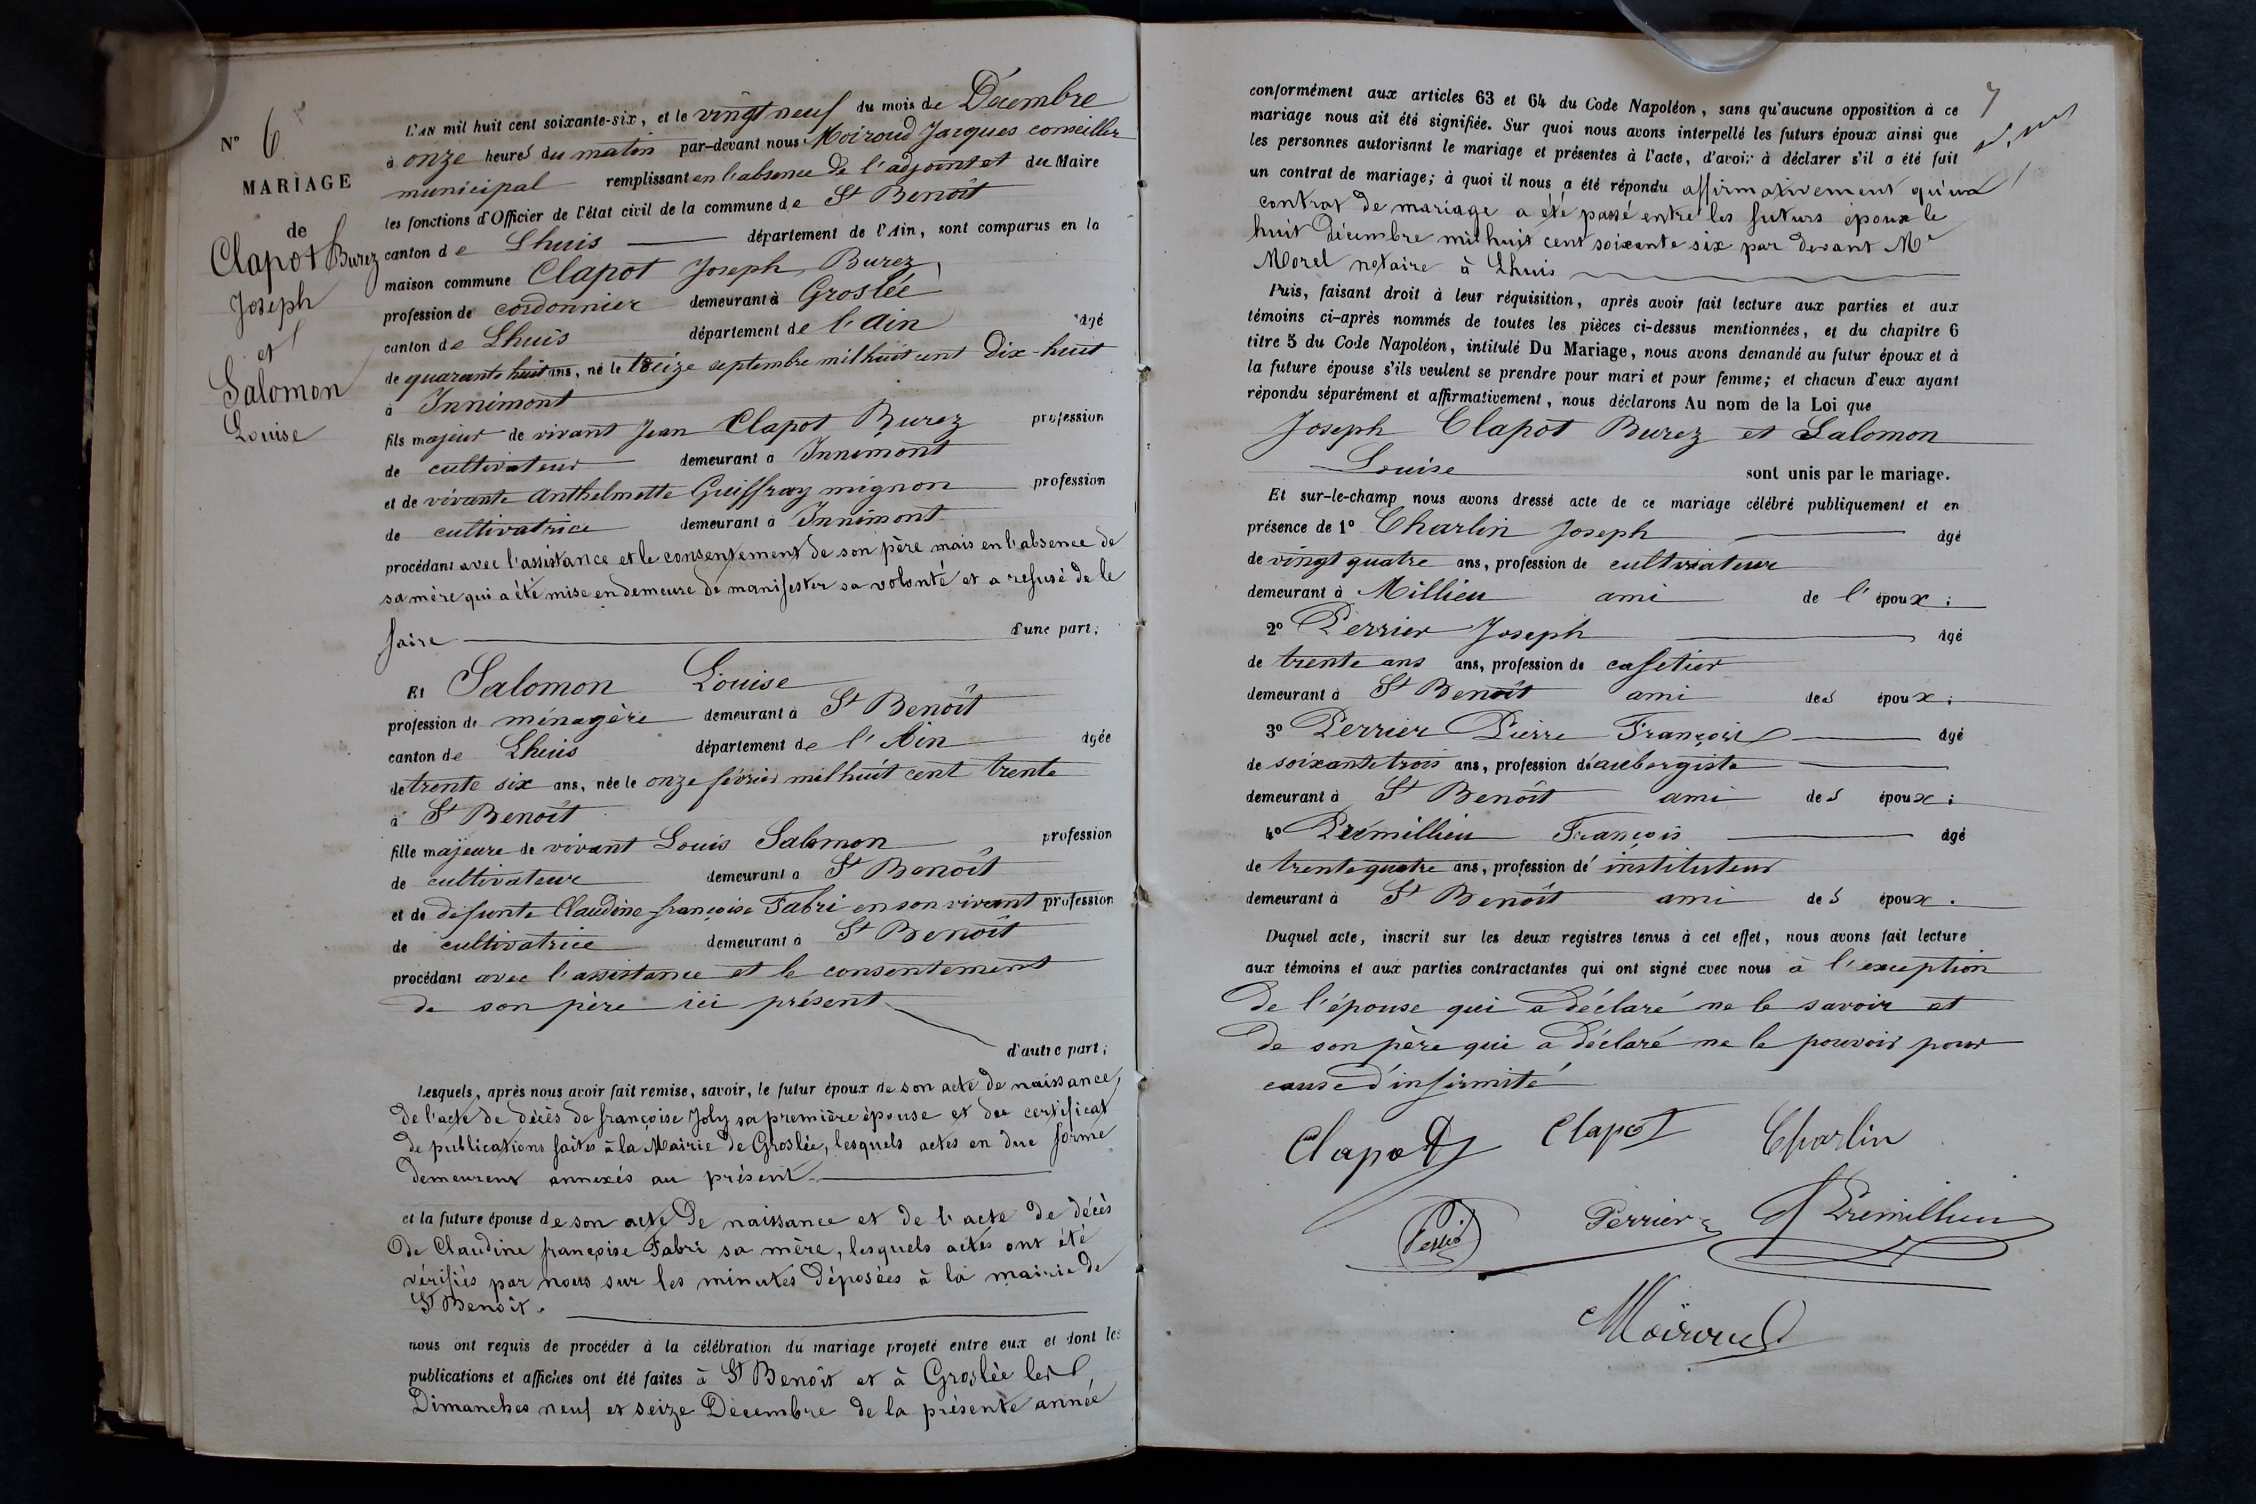 N° 6
MARIAGE
de
Clapot Burez
Joseph
et
Salomon
Louise
L'AN mil huit cent soixante-six, et le vingt neuf du mois de Décembre
à onze heures du matin par-devant nous Moiroud Jacques conseiller
municipal remplissant en l'absence de l'adjoint et du Maire
les fonctions d'Officier de l'état civil de la commune de St Benoît
canton de Lhuis département de l'Ain, sont comparus en la
maison commune Clapot Joseph Burez,
profession de cordonnier demeurant à Groslée
canton de Lhuis département de l'Ain âgé
de quarante huit ans, né le treize septembre mil huit cent Dix-huit
à Innimont
fils majeur de vivant Jean Clapot Burez profession
de cultivateur demeurant à Innimont
et de vivante Anthelmette Guiffray mignon profession
de cultivatrice demeurant à Innimont
procédant avec l'assistance et le consentement de son père mais en l'absence de
sa mère qui a été mise en demeure de manifester sa volonté et a refusé de le
faire d'une part;
Et Salomon Louise
profession de ménagère demeurant à St Benoît
canton de Lhuis département de l'Ain âgée
de trente six ans, née le onze février mil huit cent trente
à St Benoît
fille majeure de vivant Louis Salomon profession
de cultivateur demeurant à St Benoît
et de défunte Claudine françoise Fabri en son vivant profession
de cultivatrice demeurant à St Benoît
procédant avec l'assistance et le consentement
de son père ici présent
d'autre part;
Lesquels, après nous avoir fait remise, savoir, le futur époux de son acte de naissance,
de l'acte de décès de françoise Joly sa première épouse et du certificat
de publications faites à la Mairie de Groslée, lesquels actes en due forme
demeurent annexés au présent.
et la future épouse de son acte de naissance et de l'acte de décès
de Claudine françoise Fabri sa mère, lesquels actes ont été
vérifiés par nous sur les minutes déposées à la mairie de
St Benoît.
nous ont requis de procéder à la célébration du mariage projeté entre eux et dont les
publications et affiches ont été faites à St Benoît et à Groslée les
Dimanches neuf et seize Décembre de la présente année
7
conformément aux articles 63 et 64 du Code Napoléon, sans qu'aucune opposition à ce
mariage nous ait été signifiée. Sur quoi nous avons interpellé les futurs époux ainsi que
les personnes autorisant le mariage et présentes à l'acte, d'avoir à déclarer s'il a été fait
un contrat de mariage; à quoi il nous a été répondu affirmativement qu'un
contrat de mariage a été passé entre les futurs époux le
huit Décembre mil huit cent soixante six par devant Me
Morel notaire à Lhuis
Puis, faisant droit à leur réquisition, après avoir fait lecture aux parties et aux
témoins ci-après nommés de toutes les pièces ci-dessus mentionnées, et du chapitre 6
titre 5 du Code Napoléon, intitulé Du Mariage, nous avons demandé au futur époux et à
la future épouse s'ils veulent se prendre pour mari et pour femme; et chacun d'eux ayant
répondu séparément et affirmativement, nous déclarons Au nom de la Loi que
Joseph Clapot Burez et Salomon
Louise sont unis par le mariage.
Et sur-le-champ nous avons dressé acte de ce mariage célébré publiquement et en
présence de 1° Charlin Joseph âgé
de vingt quatre ans, profession de cultivateur
demeurant à Millieu ami de l'époux;
2° Perrier Joseph âgé
de trente ans ans, profession de cafetier
demeurant à St Benoît ami des époux;
3° Perrier Pierre François âgé
de soixante trois ans, profession d'aubergiste
demeurant à St Benoît ami des époux;
4° Prémillieu François âgé
de trente quatre ans, profession d'instituteur
demeurant à St Benoît ami des époux.
Duquel acte, inscrit sur les deux registres tenus à cet effet, nous avons fait lecture
aux témoins et aux parties contractantes qui ont signé avec nous à l'exception
de l'épouse qui a déclaré ne le savoir et
de son père qui a déclaré ne le pouvoir pour
cause d'infirmité
Clapot Clapot Charlin
Perrier Prémillieu
Moiroud